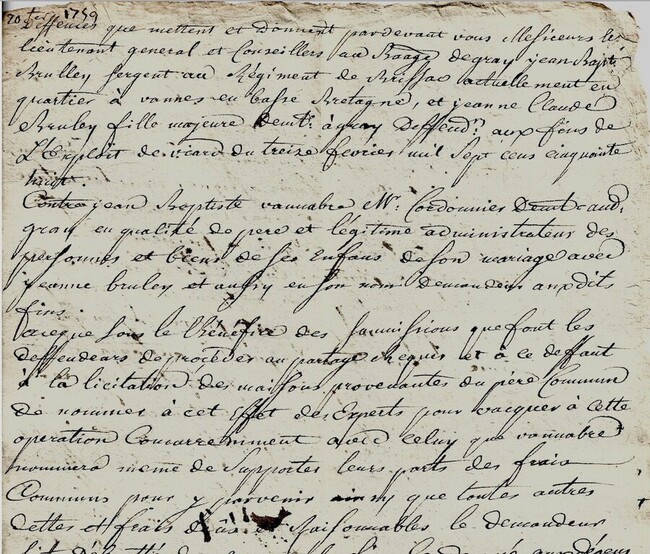 20 fev. 1759
Deffences que mettent et donnent pardevant vous Messieurs les
lieutenant general et Conseillers au Baage de gray jean Bapte
Brulley sergent au Régiment de Brissac actuellement en
quartier à vannes en basse Bretagne, et jeanne Claude
Bruley fille majeure demte. à gray Deffendrs. aux fins de
L'Exploit de viard du treize fevrier mil Sept cens cinquante
huit.
Contre jean Baptiste vannabre Me. Cordonnier Demt. aud.
gray en qualité de pere et légitime administrateur des
personnes et biens de ses Enfans de son mariage avec
jeanne bruley et aussy en son nom Demandeur auxdits
fins.
à ce que sous le Bénéfice des soumissions que font les
deffendeurs de procéder au partage requis et à ce deffaut
à la licitation des maisons provenantes du père Commun
de nommer à cet Effet des Experts pour vacquer à Cette
operation Concurremment avec celuy que vannabre
nommera meme de Supporter leurs parts des frais
Communs pour y parvenir ainsy que toutes autres
dettes et frais dûs et Raisonnables le demandeur